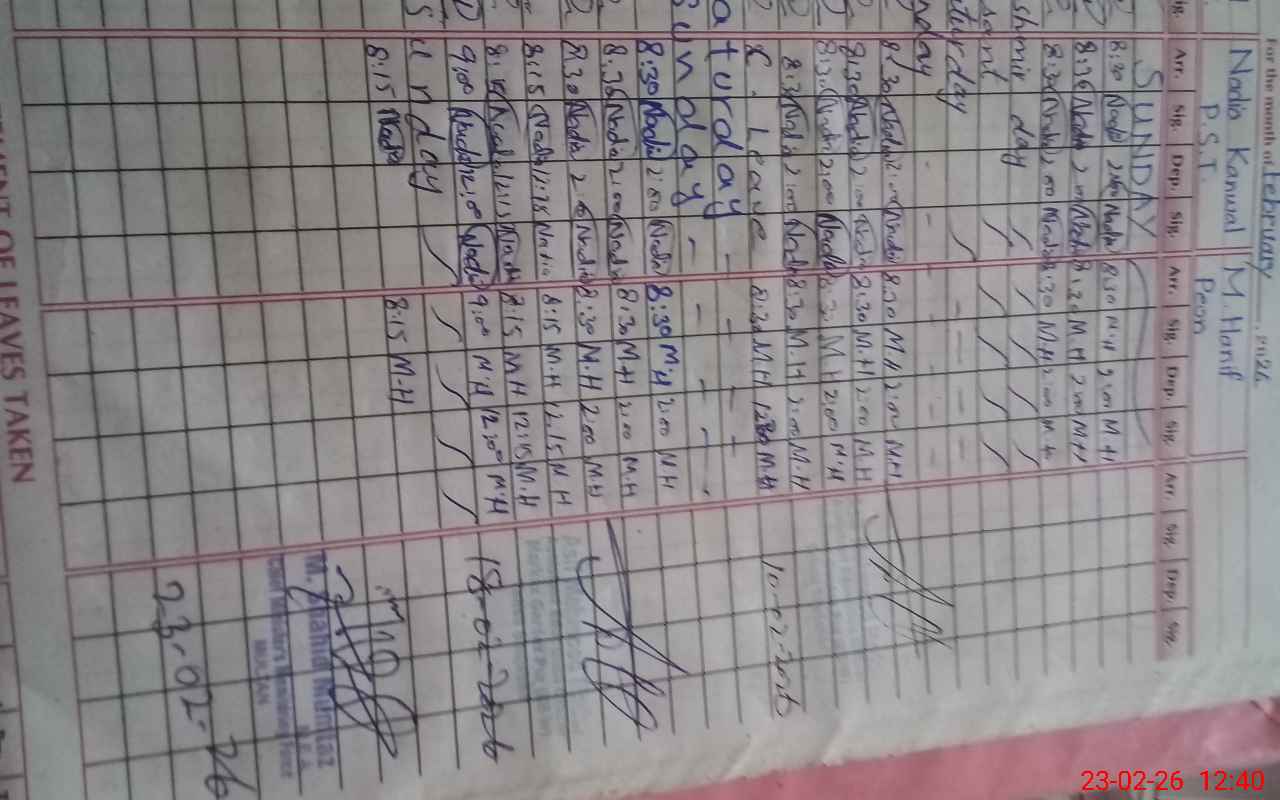 For the month of February, 2026
Nadia Kanwal M. Hanif
P.S.T. Peon
Sig. Arr. Sig. Dep. Sig. Arr. Sig. Dep. Sig. Arr. Sig. Dep. Sig.
SUNDAY
8:30 Nadia 2:00 Nadia 8:30 M.H 2:00 M.H
8:30 Nadia 2:00 Nadia 8:30 M.H 2:00 M.H
8:30 Nadia 2:00 Nadia 8:30 M.H 2:00 M.H
shmir day
turday
nday
8:30 Nadia 2:00 Nadia 8:30 M.H 2:00 M.H
8:30 Nadia 2:00 Nadia 8:30 M.H 2:00 M.H
8:30 Nadia 2:00 Nadia 8:30 M.H 2:00 M.H
8:30 Nadia 2:00 Nadia 8:30 M.H 2:00 M.H
C. Leave 8:30 M.H M.H 10-02-2026
aturday - - - -
Sunday - - - - -
8:30 Nadia 2:00 Nadia 8:30 M.H 2:00 M.H
8:30 Nadia 2:00 Nadia 8:30 M.H 2:00 M.H
8:30 Nadia 2:00 Nadia 8:30 M.H 2:00 M.H
8:15 Nadia Nadia 8:15 M.H 12:15 M.H
8:15 Nadia 12:15 Nadia 8:15 M.H 12:15 M.H
9:00 Nadia 12:00 Nadia 9:00 M.H 12:00 M.H 18-02-2026
Sunday
8:15 Nadia 8:15 M.H
M. Mumtaz
MULTAN
23-02-26
MENT OF LEAVES TAKEN
23-02-26 12:40